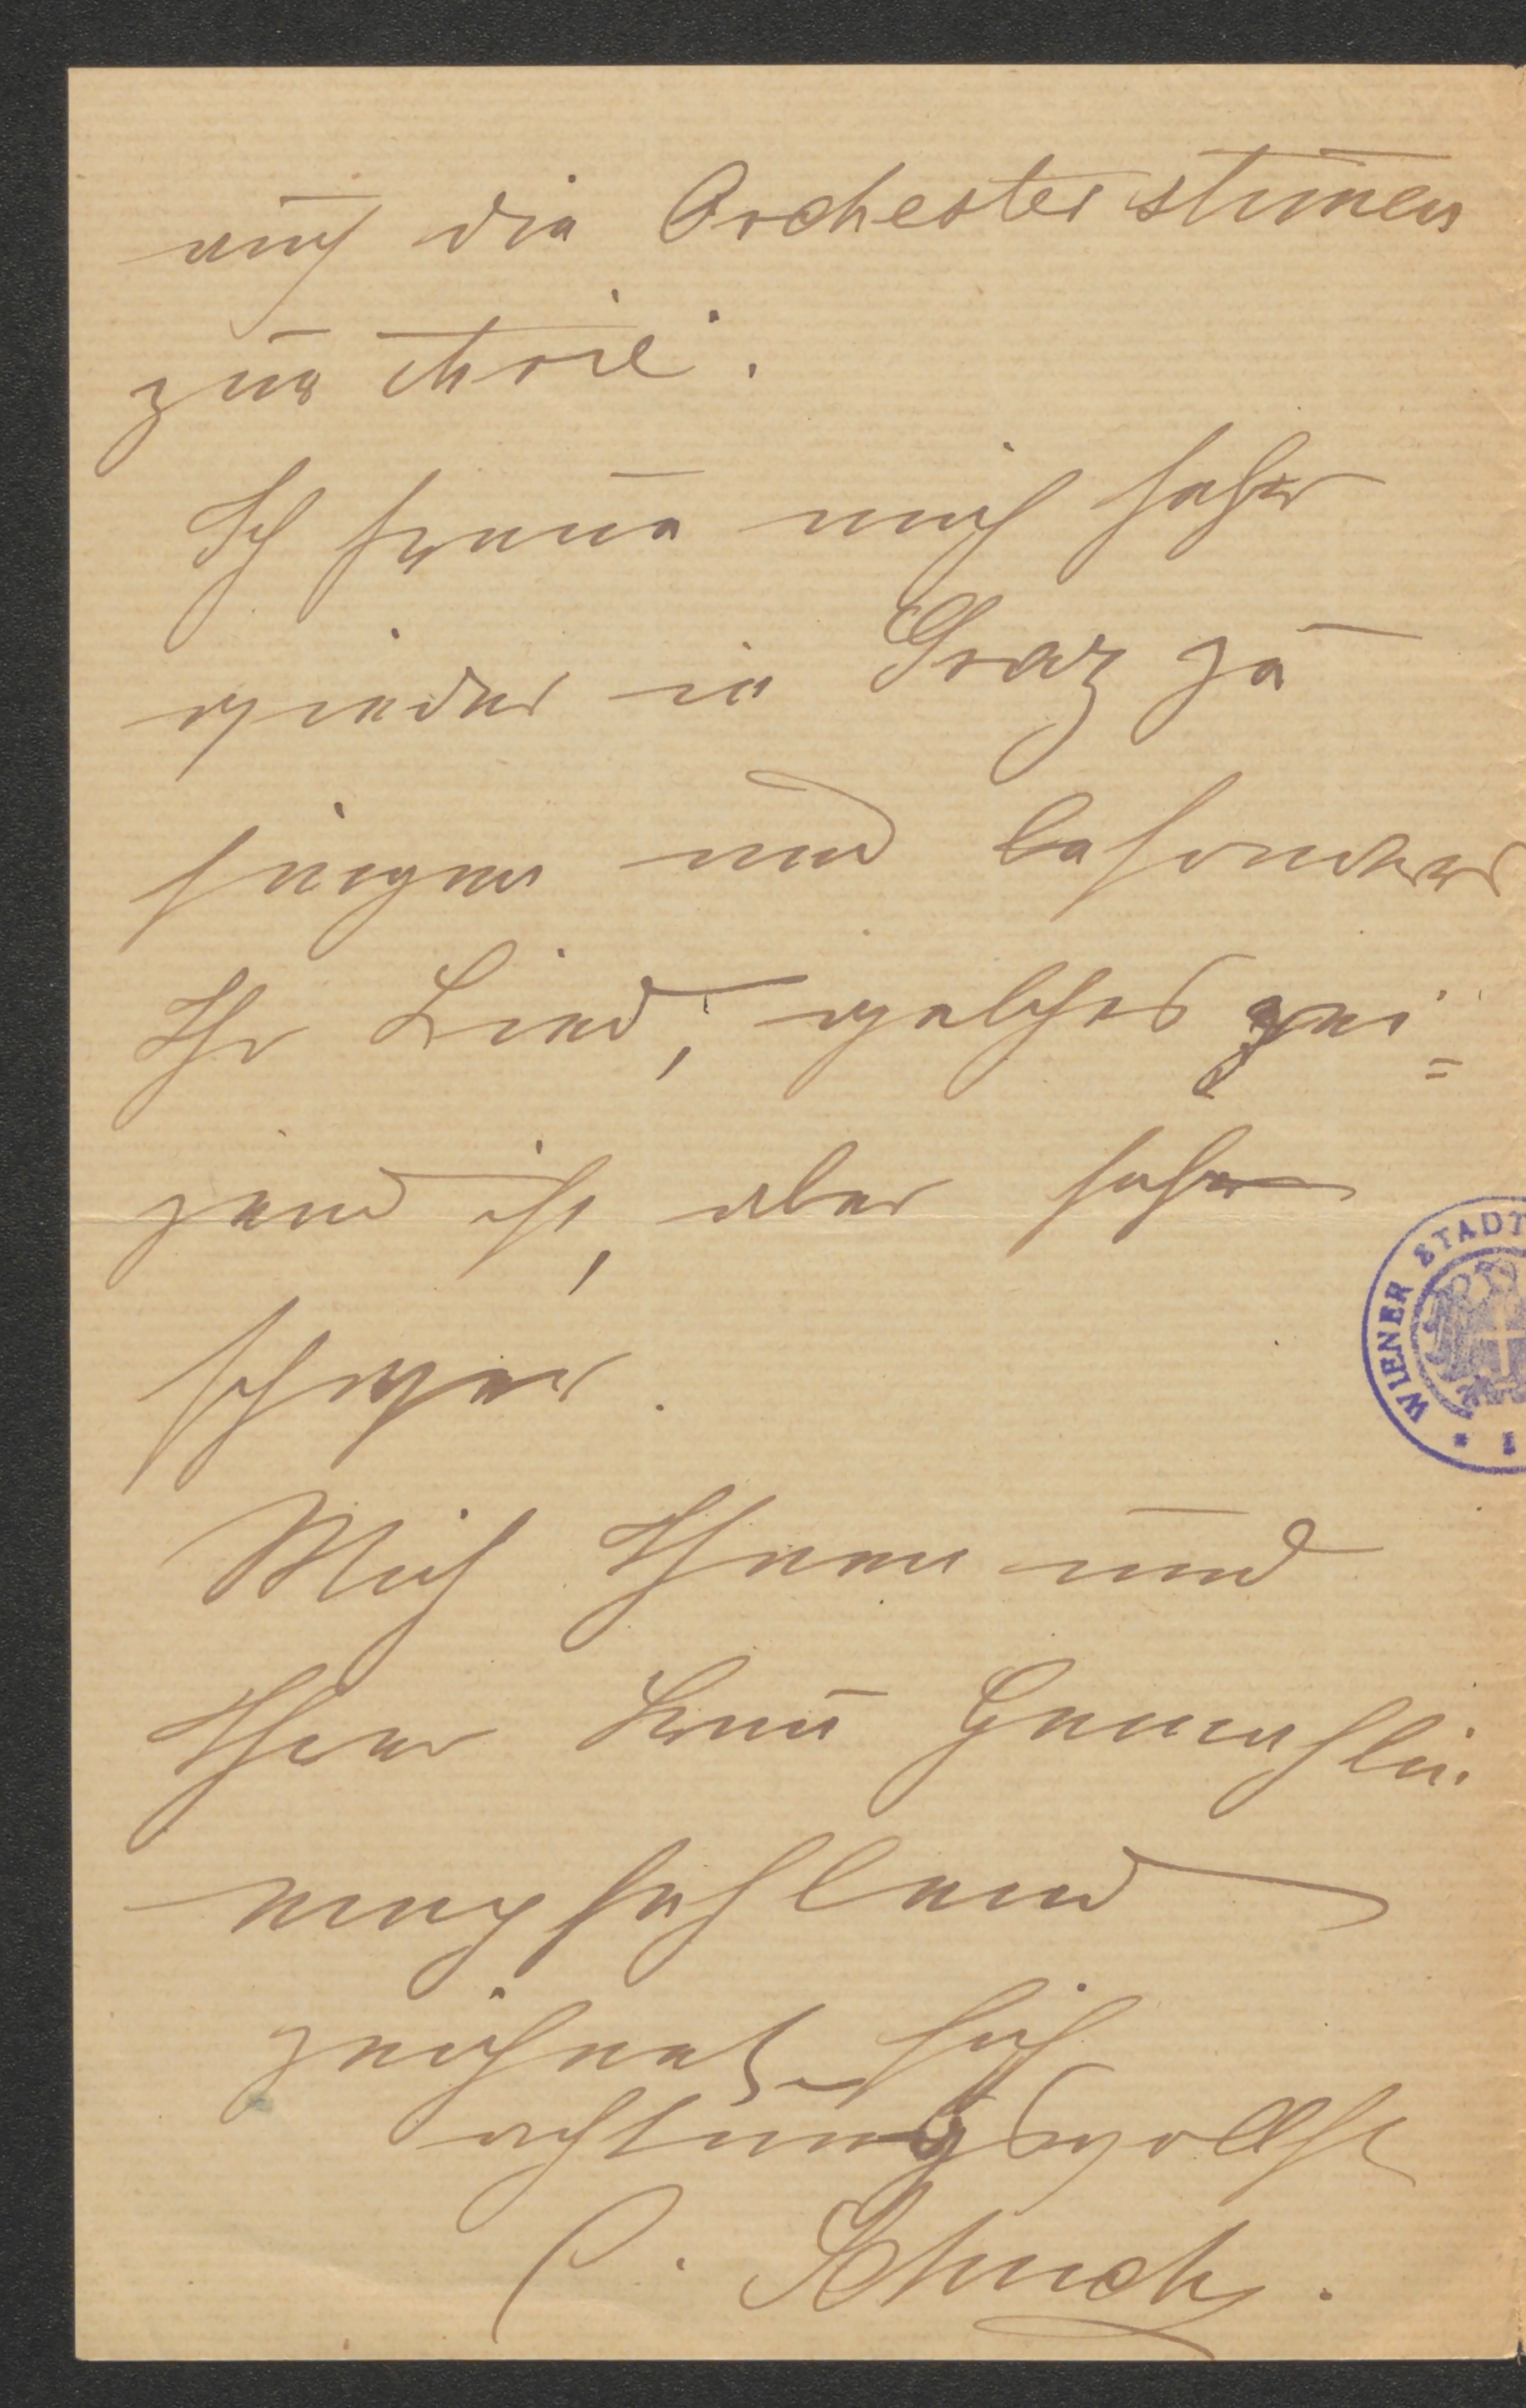 auch die Orchesterstim̅en
zur Arie.
Ich freue mich sehr
wieder in Graz zu
singen und besonders
Ihr Lied, welches rei=
zend ist, aber sehr
schwer.
Mich Ihnen und
Ihrer Frau Gemahlin
empfehlend
zeichnet sich
achtungsvollst
C. Schuch.
WIENER STADT